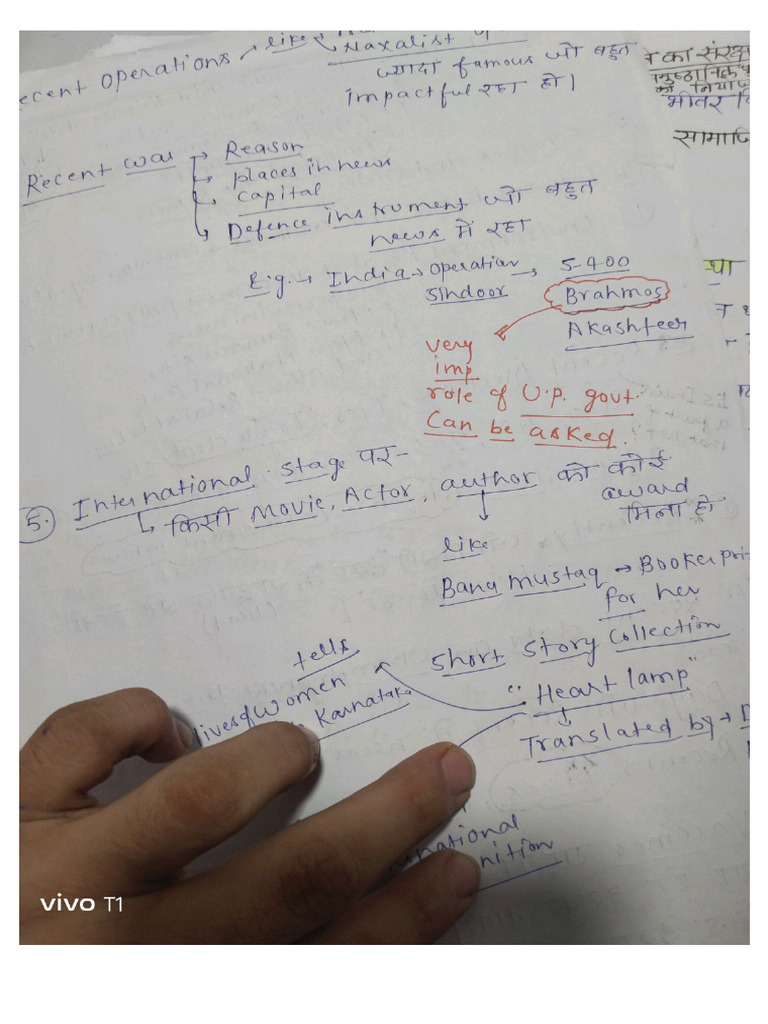 Recent operations → like
Naxalist
ज्यादा famous जो बहुत
impactful रहा हो।
Recent war → Reason
→ places in news
→ capital
→ Defence instrument जो बहुत
news में रहा
E.g. → India → operation → S-400
Sindoor
Brahmos
Akashteer
very
imp
role of U.P. govt.
Can be asked.
5. International stage पर-
↳ किसी Movie, Actor, author को कोई
award
मिला हो।
↓
like
Banu mustaq → Booker pri
for her
short story collection
"Heart lamp"
↓
Translated by →
tells
lives of women
Karnataka
national
nition
का संरक्ष
भीतर
सामाजि
था
vivo T1